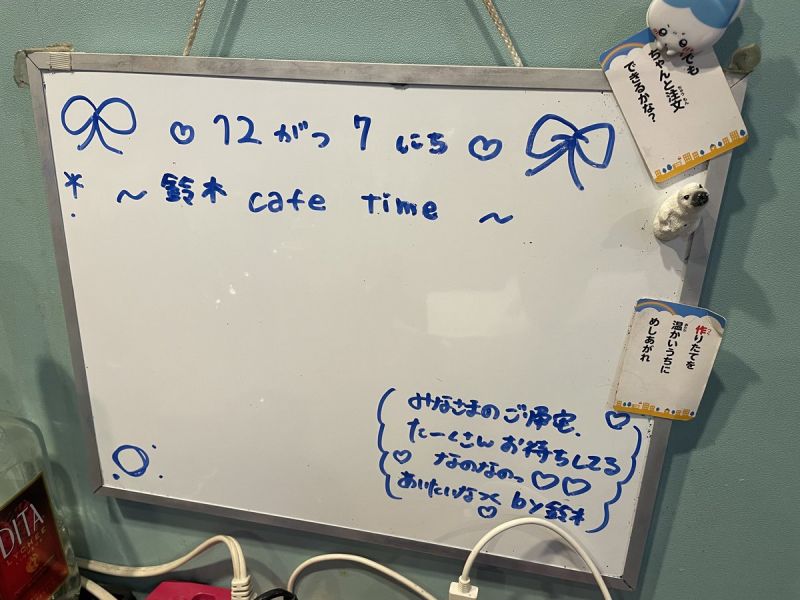 12がつ7にち
～鈴木 cafe time～
でも
ちゃんと注文
できるかな?
作りたてを
温かいうちに
めしあがれ
みなさまのご帰宅、
たーくさんお待ちしてる
なのなのっ
あいたいなっ by鈴木
DITA
LYCHEE